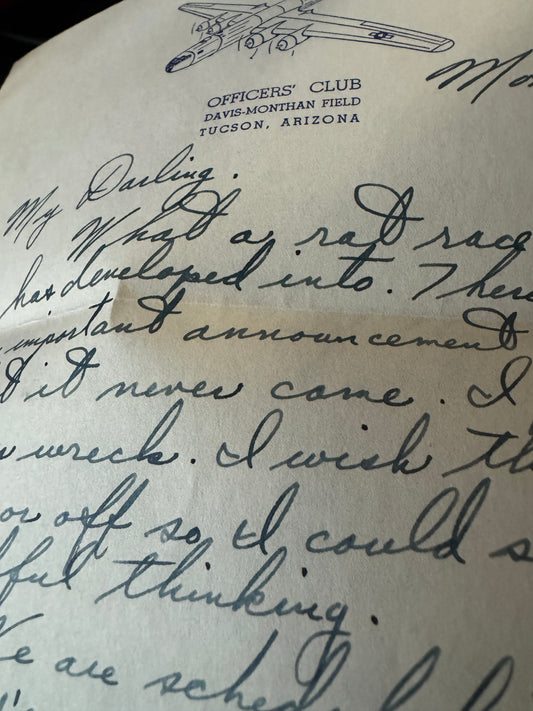 OFFICERS' CLUB
DAVIS-MONTHAN FIELD
TUCSON, ARIZONA
Mo
My Darling.
What a rat race
has developed into. There
important announcement
it never came. I
wreck. I wish th
or off so I could s
ful thinking.
We are sched